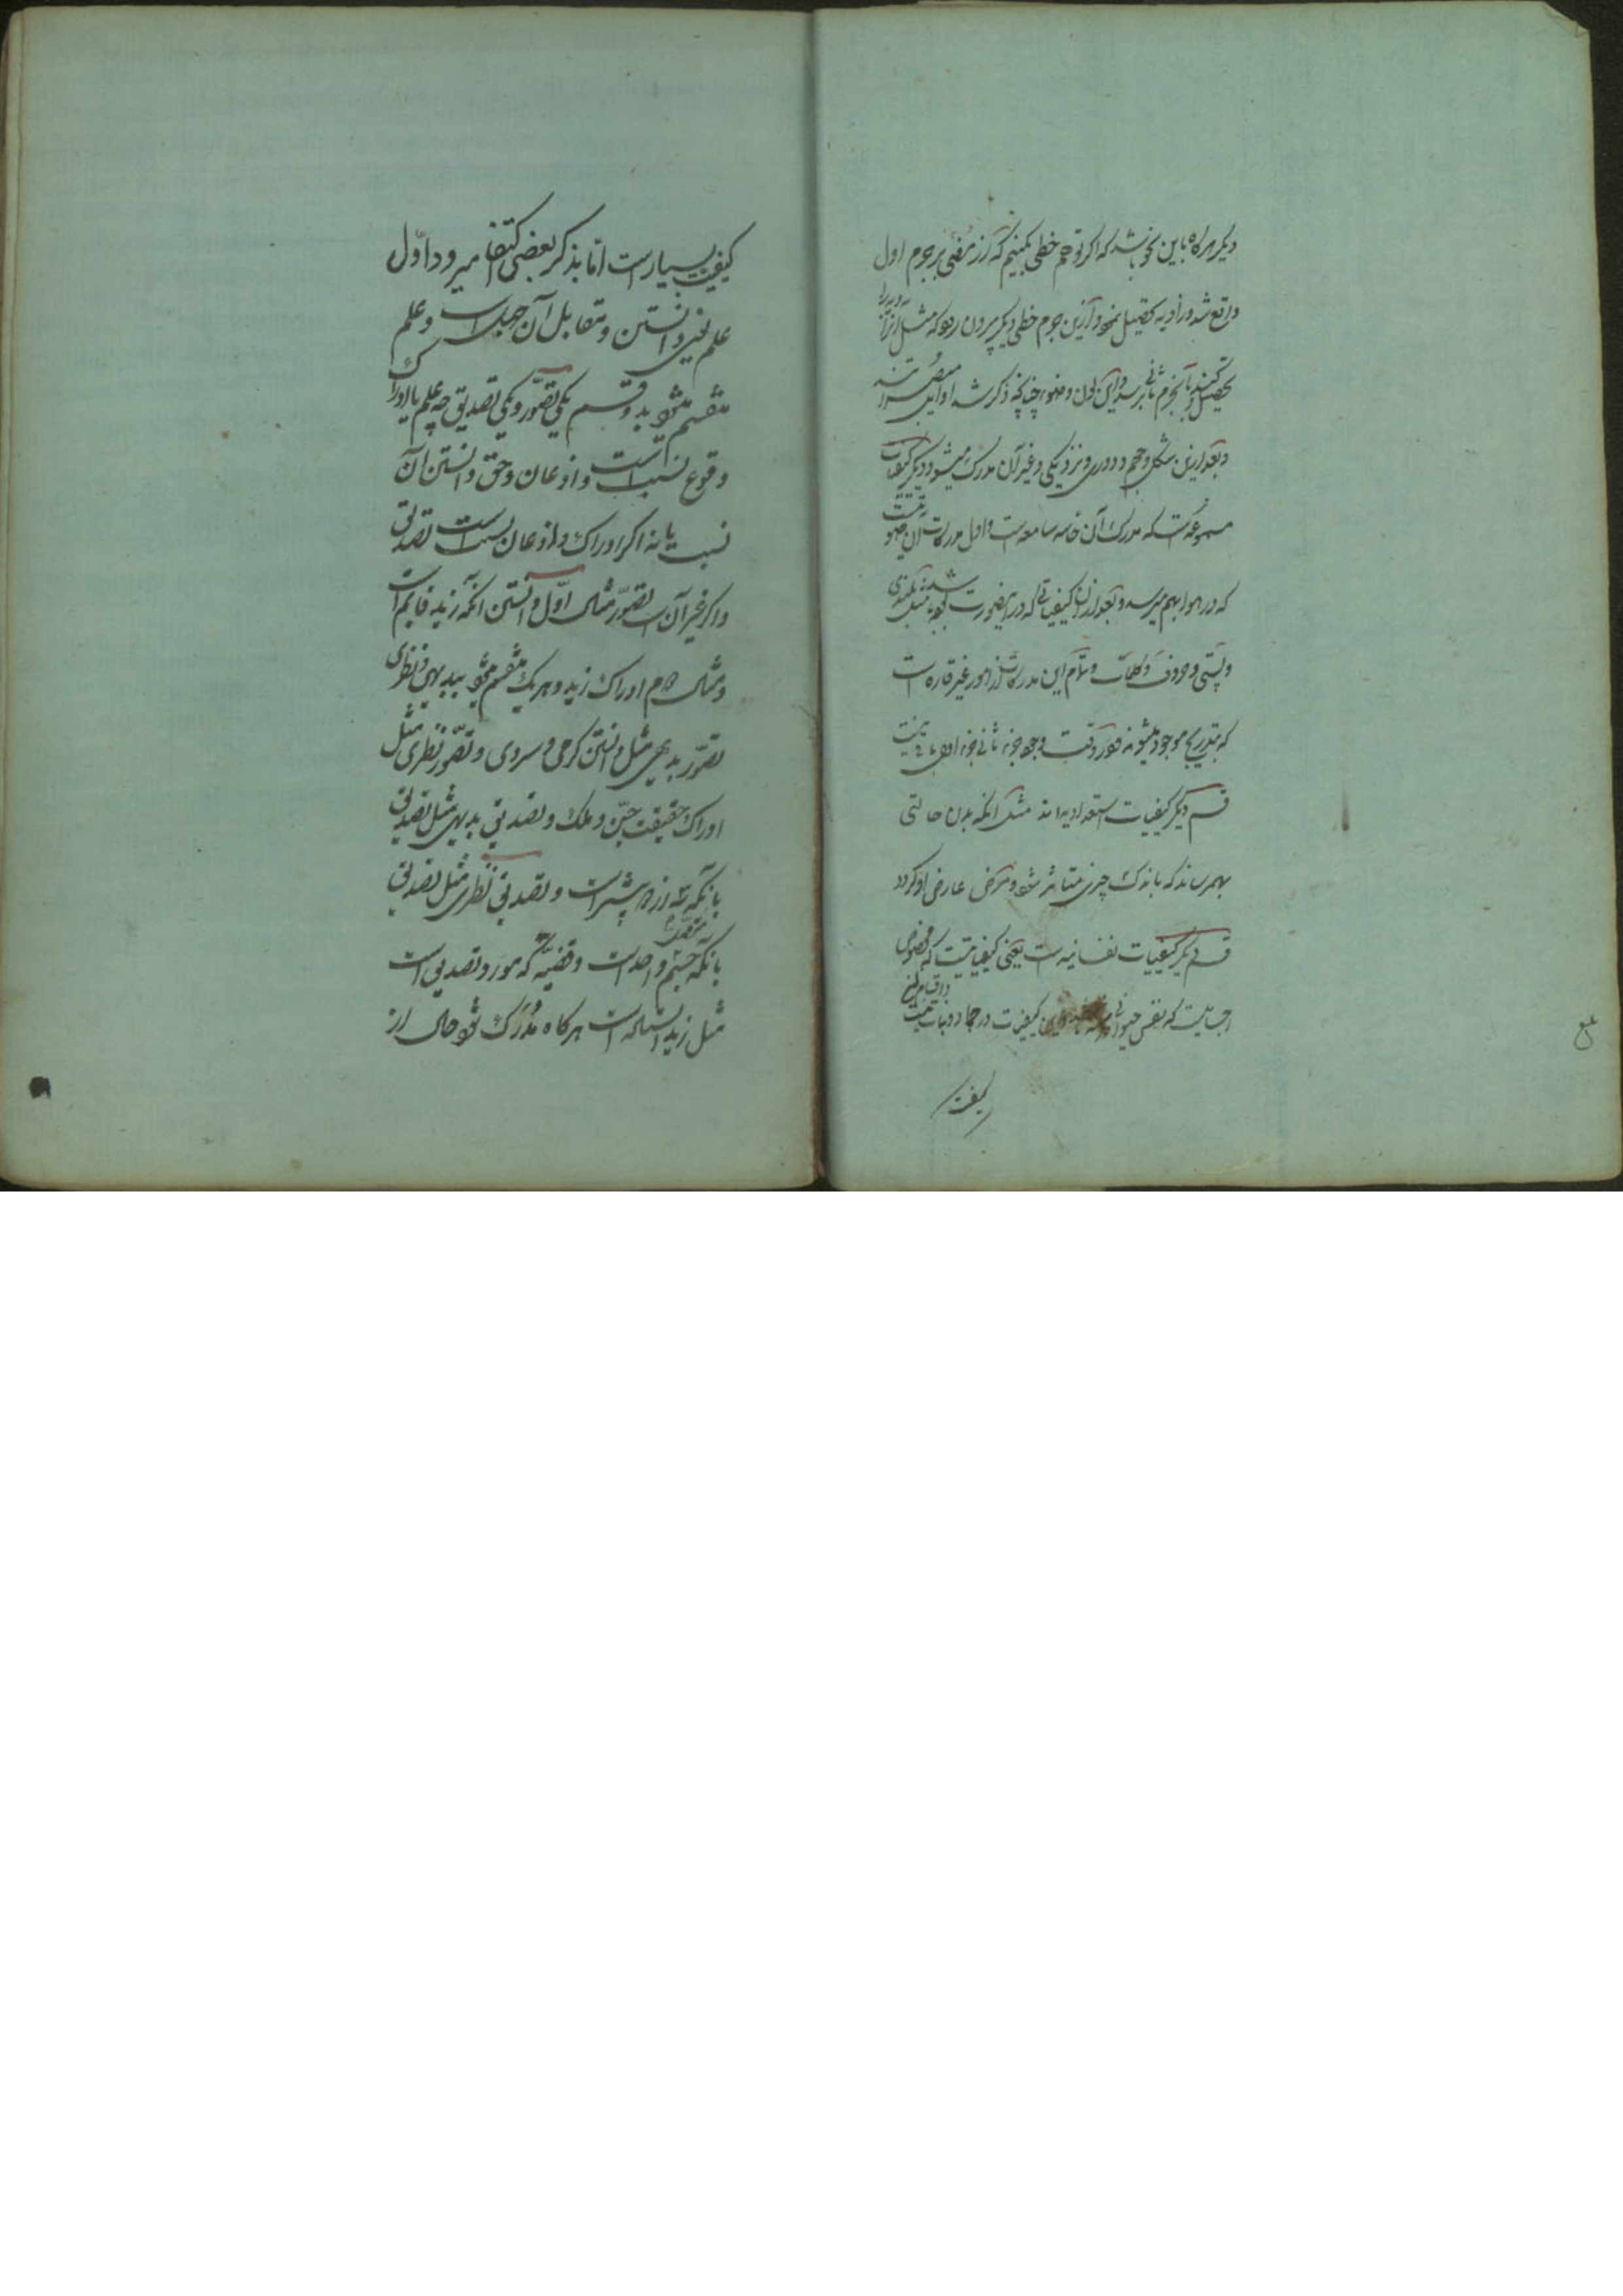 دیگر هرگاه باین نحو باشد که اگر توهم خطی بکنیم که از مرئی بر جرم اول
واقع شد و زاویه تحصیل نمود و ازین جرم خطی دیگر بیرون رود که مثل آن زاویه را
تحصیل کند و بآن جرم ثانی برسد و این لون و ضوء چنانچه ذکر شد اوایل مبصراتند
و بعد ازین شکل و حجم و دوری و نزدیکی و غیر آن مدرک میشود دیگر کیفیات
مسموعه است که مدرک آن حاسه سامعه است و اول مدرکات آن صوتیست
که در هوا بهم میرسد و بعد از آن کیفیاتی که در این صورت بهم میرسد مثل بلندی
و پستی و حروف و کلمات و تمام این مدرکات از امور غیر قاره است
که بتدریج موجود میشوند و در وقت وجود جزء ثانی جزء اول باقی نیست
قسم دیگر کیفیات استعدادیه‌اند مثل آنکه بدن حالتی
بهمرساند که باندک چیزی متأثر شود و مرض عارض او گردد
قسم دیگر کیفیات نفسانیه است یعنی کیفیاتیست که مخصوص
اجسامیست که نفس حیوانی داشته باشد و این کیفیات در جماد و نبات نیست و اقسام این
کیفیت
کیفیت بسیار است اما بذکر بعضی اکتفا میرود اول
علم یعنی دانستن و مقابل آن جهل است و علم
منقسم میشود بدو قسم یکی تصور و یکی تصدیق چه علم یا ادراک
وقوع نسبت است و اذعان و حق دانستن آن
نسبت یا نه اگر ادراک و اذعان نسبت است تصدیق
و اگر غیر آن است تصور مثال اول دانستن آنکه زید قایم است
و مثال دوم ادراک زید و هر یک منقسم میشود ببدیهی و نظری
تصور بدیهی مثل دانستن گرمی و سردی و تصور نظری مثل
ادراک حقیقت جن و ملک و تصدیق بدیهی مثل تصدیق
بآنکه سه از دو بیشتر است و تصدیق نظری مثل تصدیق
بآنکه جسم واحد است و قضیه که مورد تصدیق است
مثل زید ایستاده است هرگاه مدرک شود حال از
بلغ